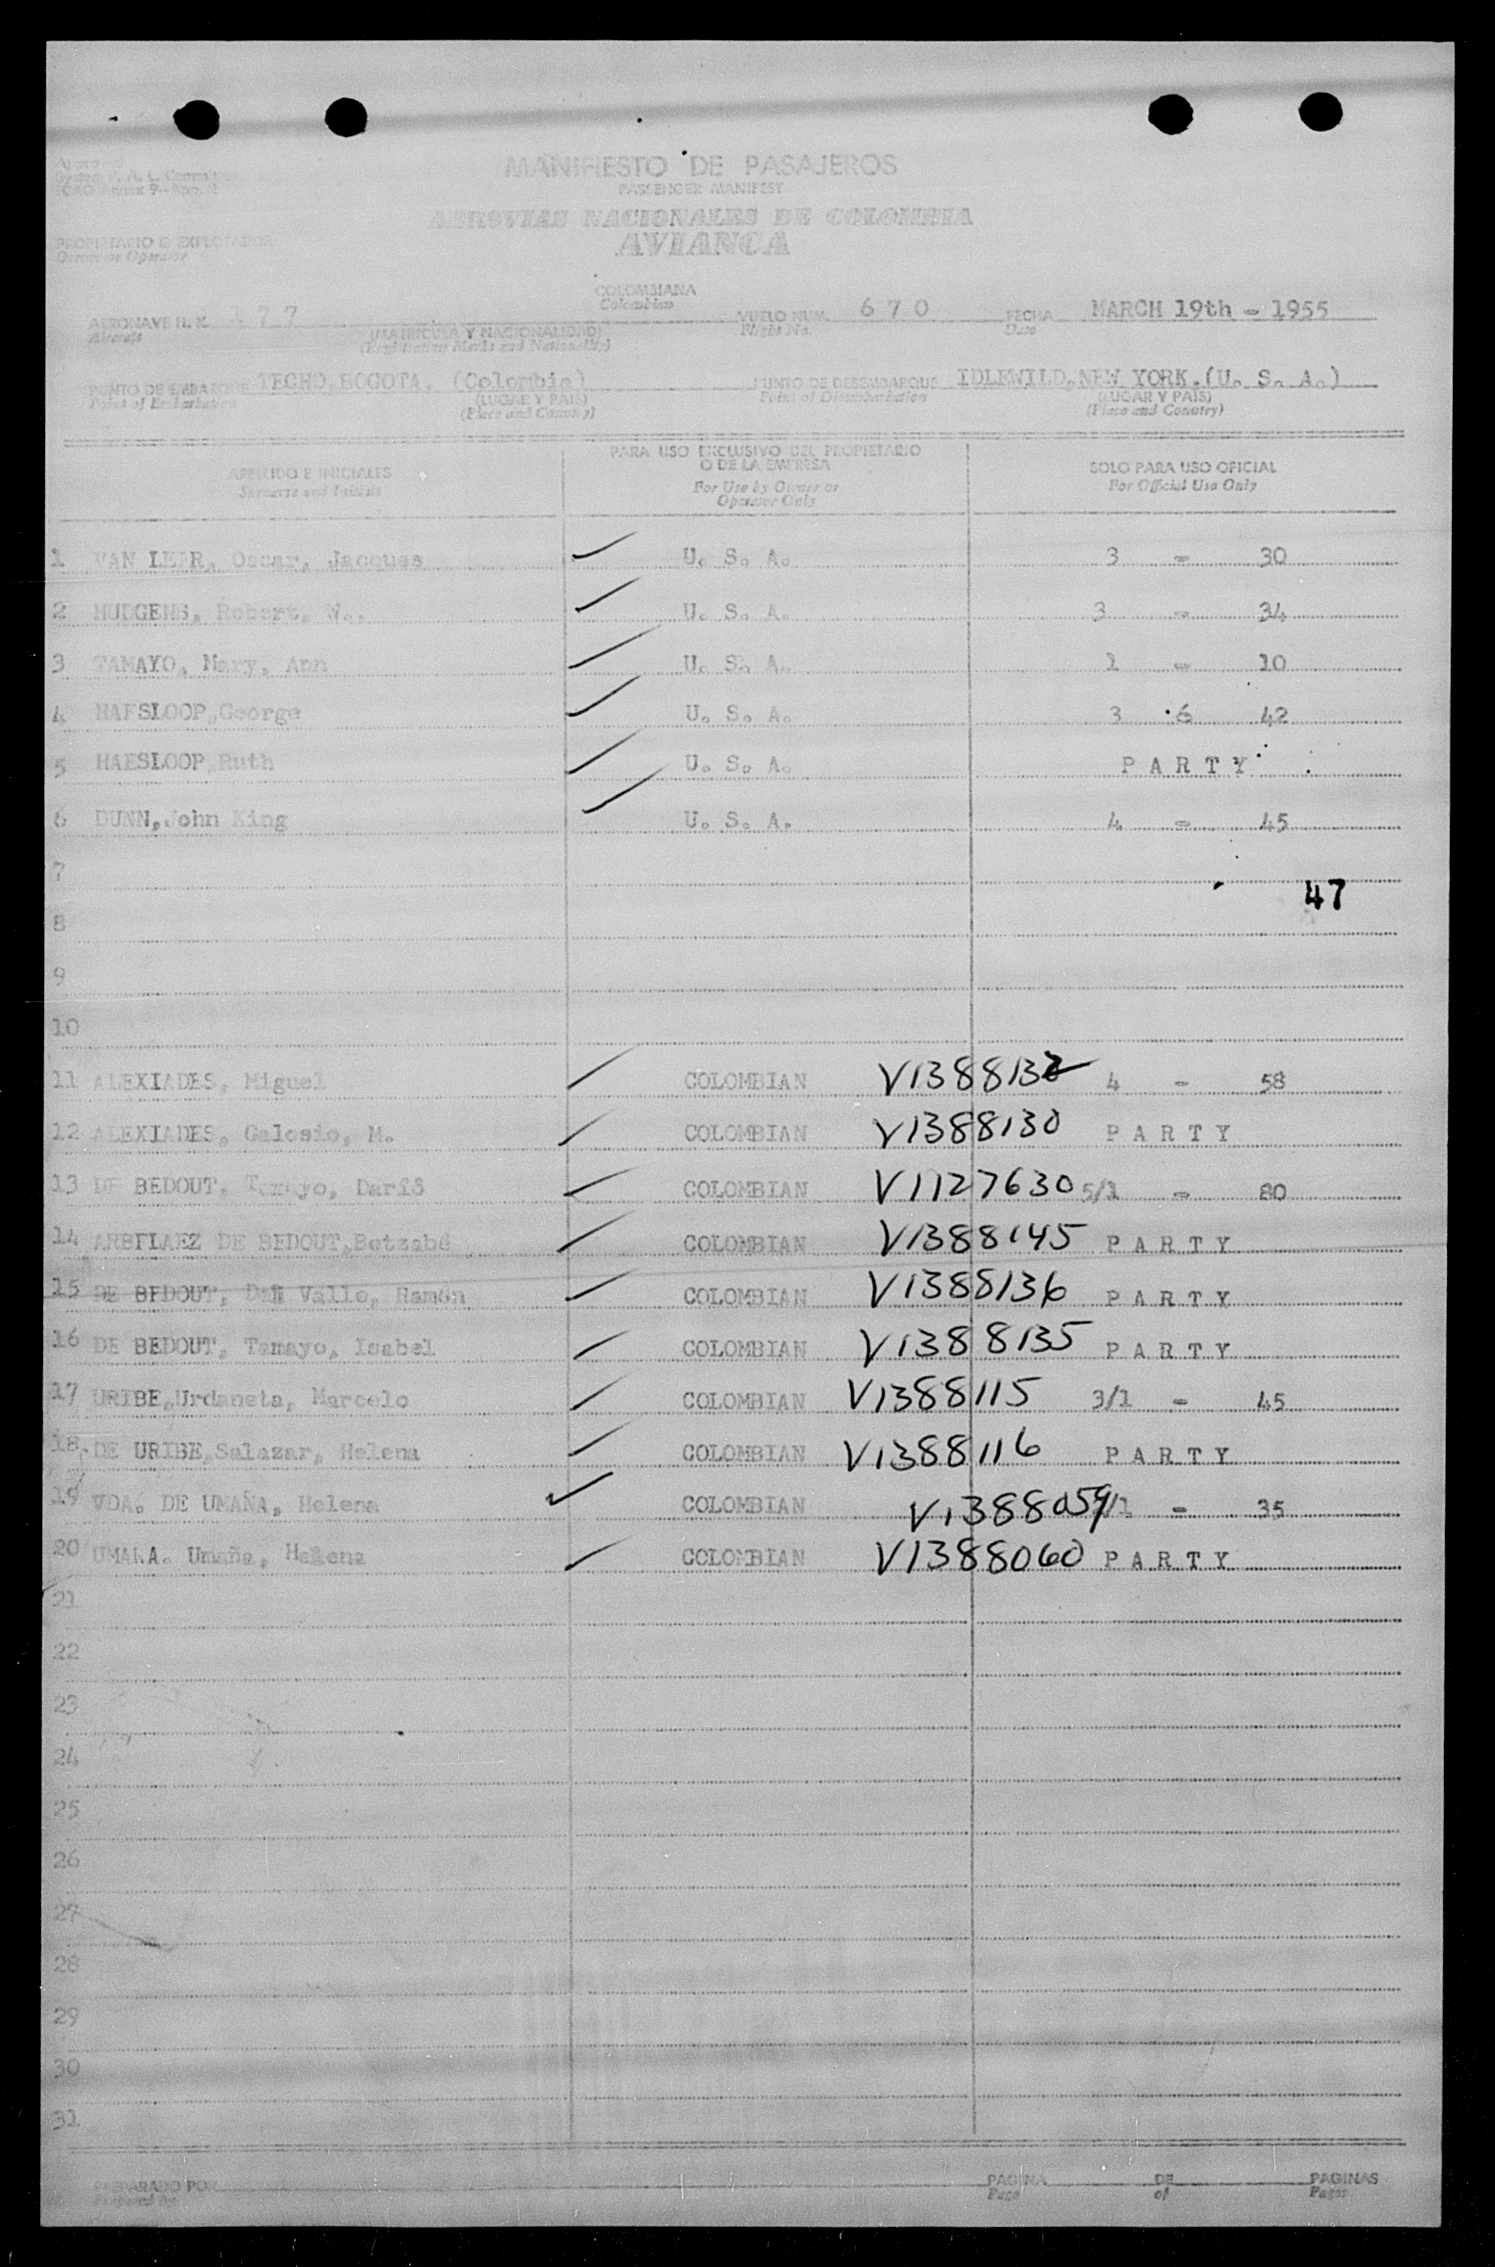 MANIFIESTO DE PASAJEROS
PASSENGER MANIFEST
AEROVIAS NACIONALES DE COLOMBIA
AVIANCA
PROPIETARIO O EXPLOTADOR
Owner or Operator
COLOMBIANA
Colombian
AERONAVE H. K. 477 VUELO NUM. 670 FECHA MARCH 19th - 1955
Aircraft (MATRICULA Y NACIONALIDAD) Flight No. Date
(Registration Marks and Nationality)
PUNTO DE EMBARQUE TECHO, BOGOTA, (Colombia) PUNTO DE DESEMBARQUE IDLEWILD, NEW YORK, (U. S. A.)
Point of Embarkation (LUGAR Y PAIS) Point of Disembarkation (LUGAR Y PAIS)
(Place and Country) (Place and Country)
APELLIDO E INICIALES PARA USO EXCLUSIVO DEL PROPIETARIO O DE LA EMPRESA SOLO PARA USO OFICIAL
Surname and Initials For Use by Owner or Operator Only For Official Use Only
1 VAN LEER, Oscar, Jacques U. S. A. 3 - 30
2 HUDGENS, Robert, W.. U. S. A. 3 - 34
3 TAMAYO, Mary, Ann U. S. A. 1 - 10
4 HAESLOOP, George U. S. A. 3 6 42
5 HAESLOOP, Ruth U. S. A. P A R T Y
6 DUNN, John King U. S. A. 4 - 45
7
47
8
9
10
11 ALEXIADES, Miguel COLOMBIAN V1388132 4 - 58
12 ALEXIADES, Galosio, M. COLOMBIAN V1388130 P A R T Y
13 DE BEDOUT, Tamayo, Darió COLOMBIAN V1127630 5/1 - 80
14 ARBELAEZ DE BEDOUT, Betzabé COLOMBIAN V1388145 P A R T Y
15 DE BEDOUT, Del Valle, Ramón COLOMBIAN V1388136 P A R T Y
16 DE BEDOUT, Tamayo, Isabel COLOMBIAN V1388135 P A R T Y
17 URIBE, Urdaneta, Marcelo COLOMBIAN V1388115 3/1 - 45
18. DE URIBE, Salazar, Helena COLOMBIAN V1388116 P A R T Y
19 VDA. DE UMAÑA, Helena COLOMBIAN V1388059 /1 - 35
20 UMAÑA. Umaña, Helena COLOMBIAN V1388060 P A R T Y
21
22
23
24
25
26
27
28
29
30
31
PREPARADO POR PAGINA DE PAGINAS
Prepared by Page of Pages